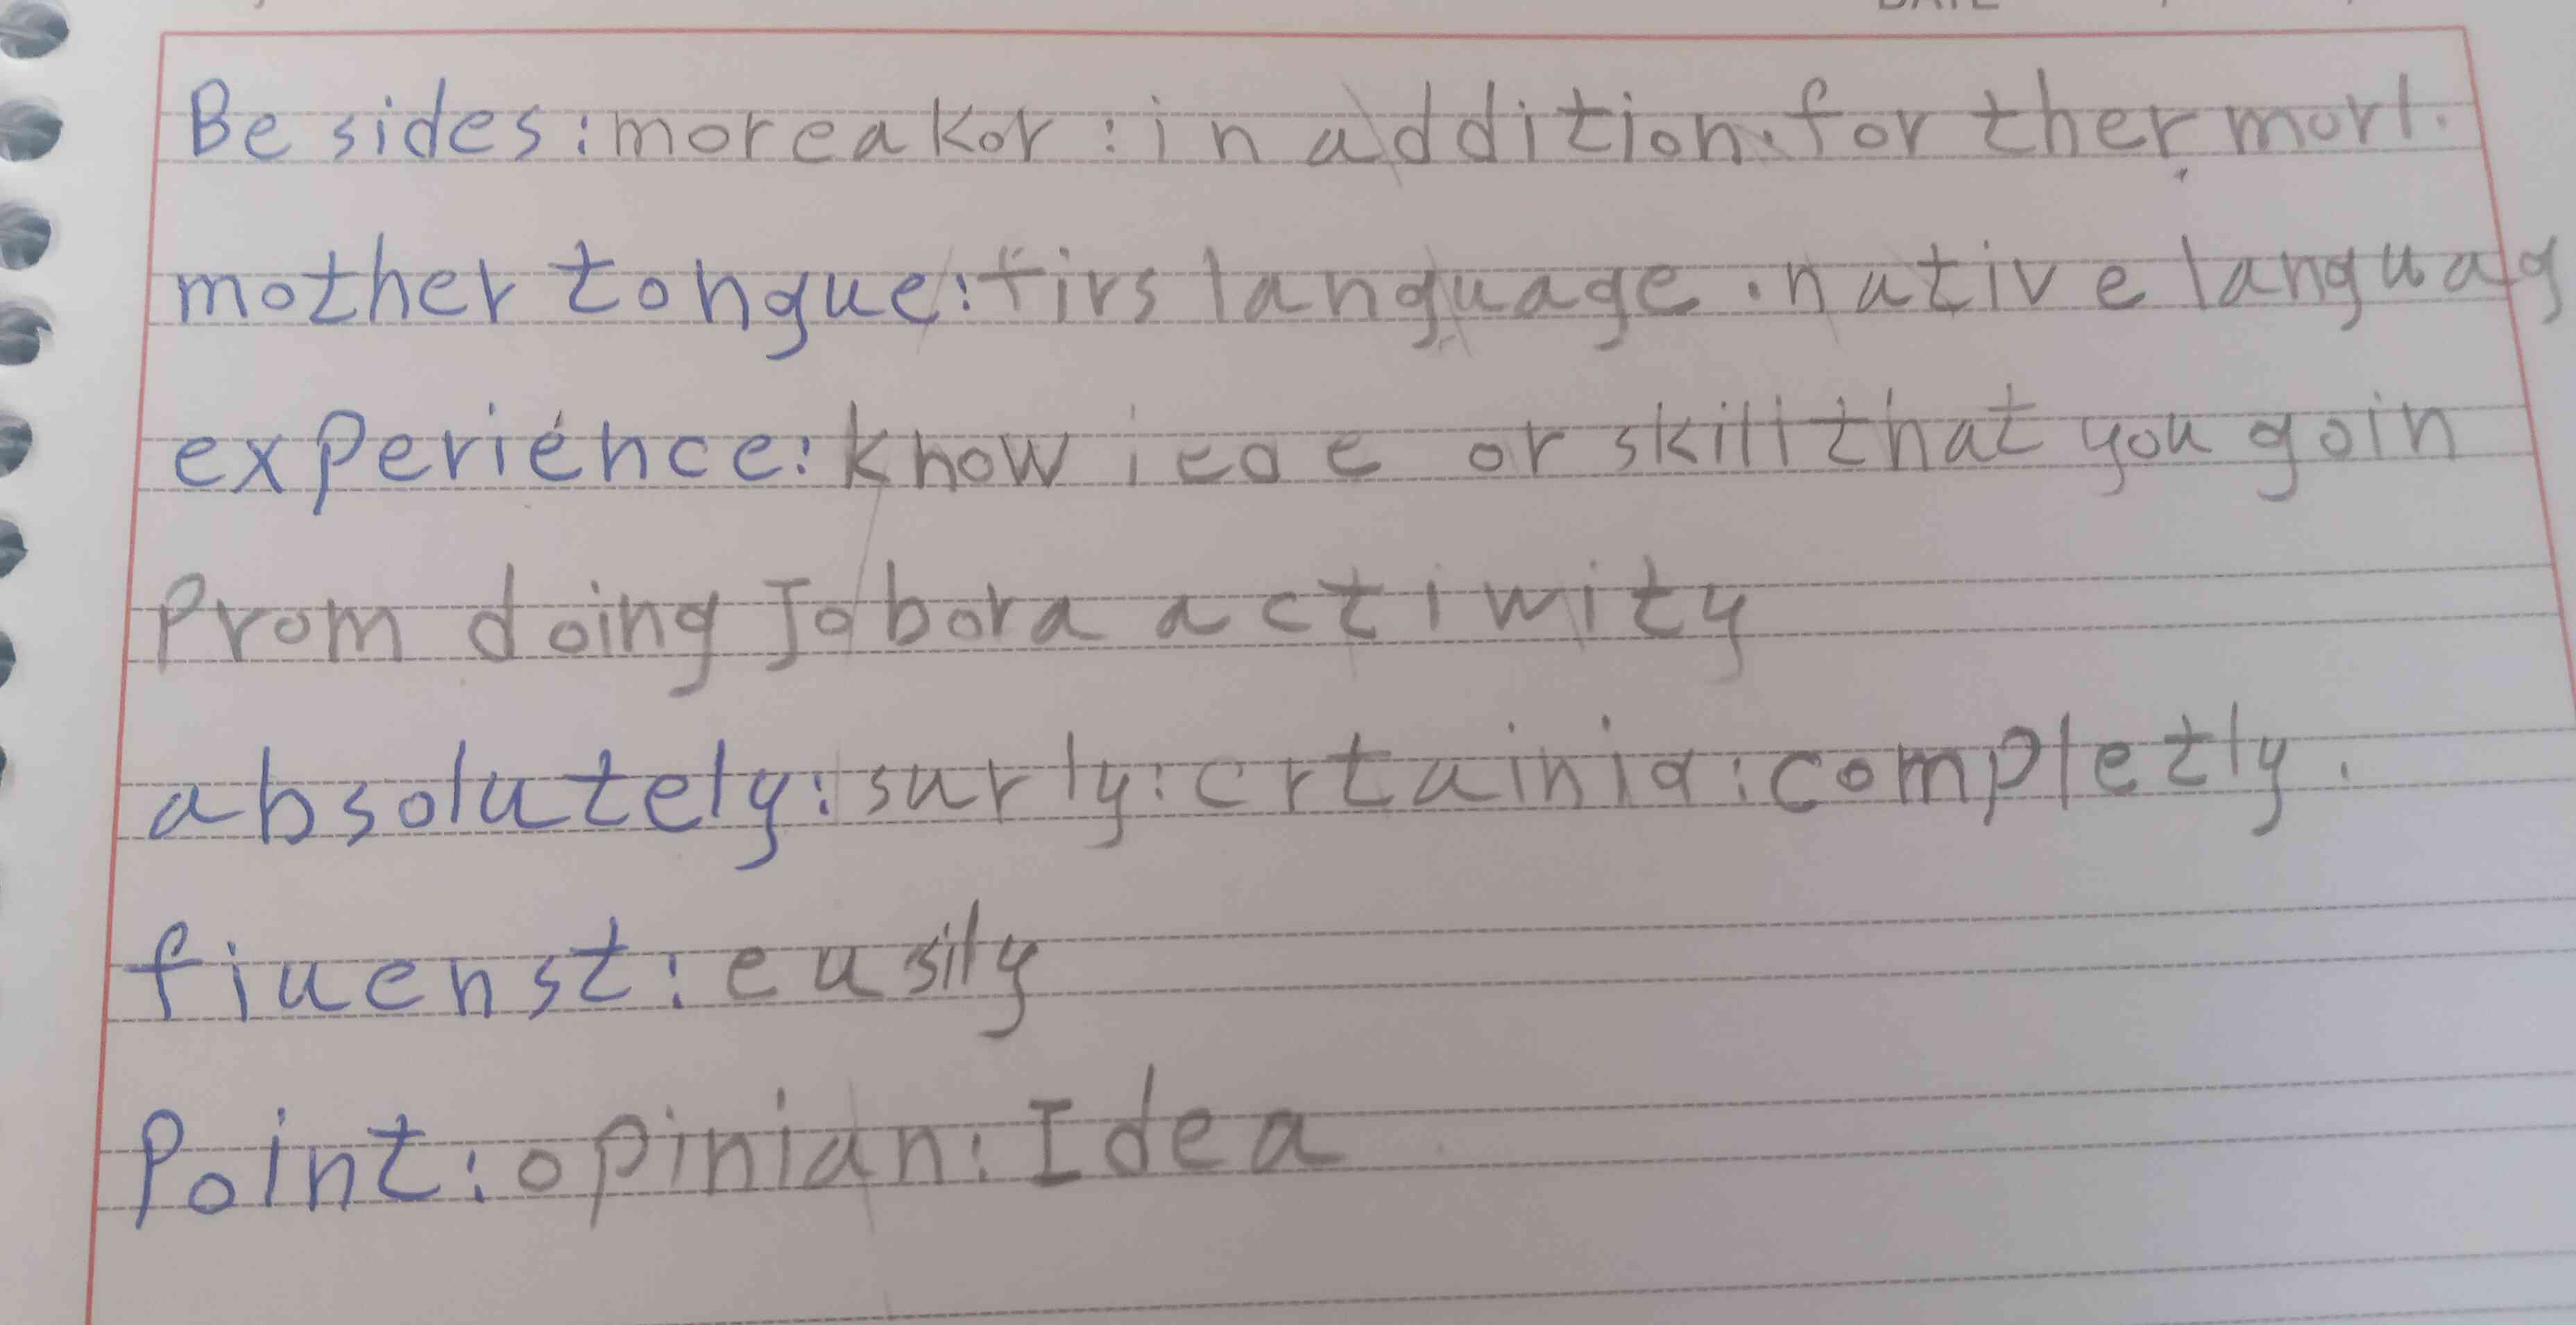 Besides: moreakor: in addition. for ther morl.
mother tongue: firs language. native languag
experience: know ieoe or skill that you goin
Prom doing Jobora actiwity
absolutely: surly: crtainia: completly.
fiuenst: easily
Point: opinian: Idea